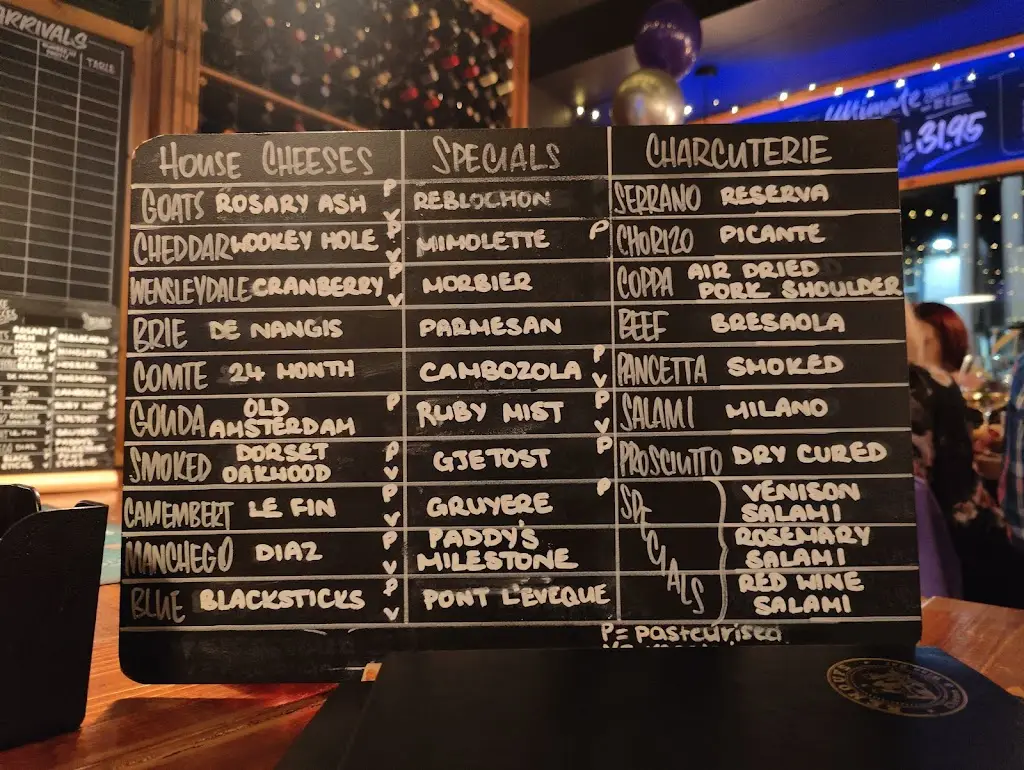 ARRIVALS
TABLE
Ultimate
£31.95
HOUSE CHEESES SPECIALS CHARCUTERIE
GOATS ROSARY ASH P V REBLOCHON SERRANO RESERVA
CHEDDAR WOOKEY HOLE P V MIMOLETTE P CHORIZO PICANTE
WENSLEYDALE CRANBERRY P V MORBIER COPPA AIR DRIED PORK SHOULDER
BRIE DE NANGIS PARMESAN BEEF BRESAOLA
COMTE 24 MONTH CAMBOZOLA P V PANCETTA SMOKED
GOUDA OLD AMSTERDAM P RUBY MIST P V SALAMI MILANO
SMOKED DORSET OAKWOOD P V GJETOST P PROSCIUTTO DRY CURED
CAMEMBERT LE FIN P V GRUYERE P SPECIALS VENISON SALAMI
MANCHEGO DIAZ P V PADDY'S MILESTONE ROSEMARY SALAMI
BLUE BLACKSTICKS P V PONT L'EVEQUE RED WINE SALAMI
P = Pasteurised